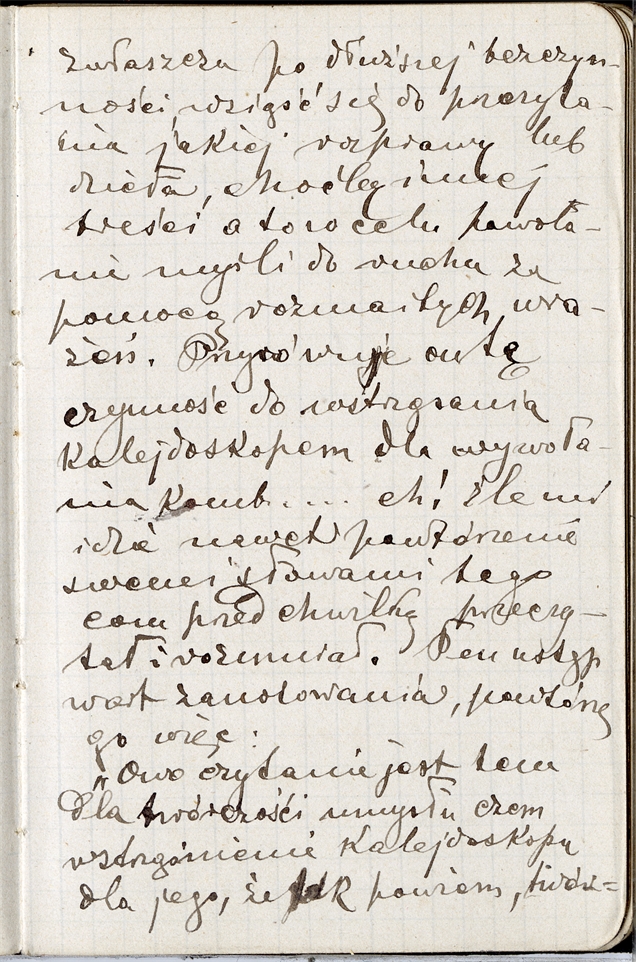 zwłaszcza po dłuższej bezczyn-
ności, wziąść się do przeczyta-
nia jakiej rozprawy lub
dzieła, choćby innej
treści a to w celu powoła-
nia myśli do ruchu za
pomocą rozmaitych wra-
żeń. Przyrównuje on tę
czynność do wstrząsania
Kalejdoskopem dla wywoła-
nia komb.... eh! źle mi
idzie nawet powtórzenie
swemi słowami tego
com przed chwilką przeczy-
tał i rozumiał. Ten ustęp
wart zanotowania, powtórzę
go więc:
"Owo czytanie jest tem
dla twórczości umysłu czem
wstrząśnienie Kalejdoskopu
dla jego, że tak powiem, twór=